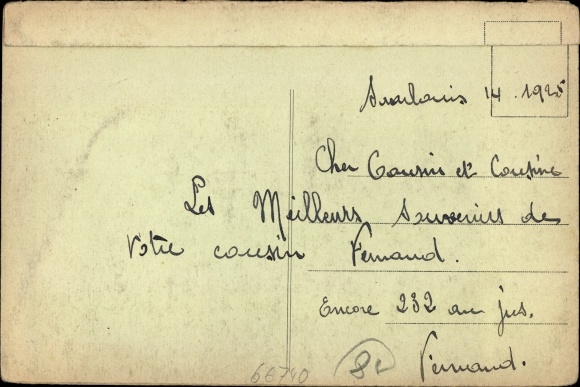 Sarrelouis 14. 1925
Cher Cousin et Cousine
Les Meilleurs Souvenirs de
Votre cousin Fernand.
Encore 232 au jus.
Fernand.
66740